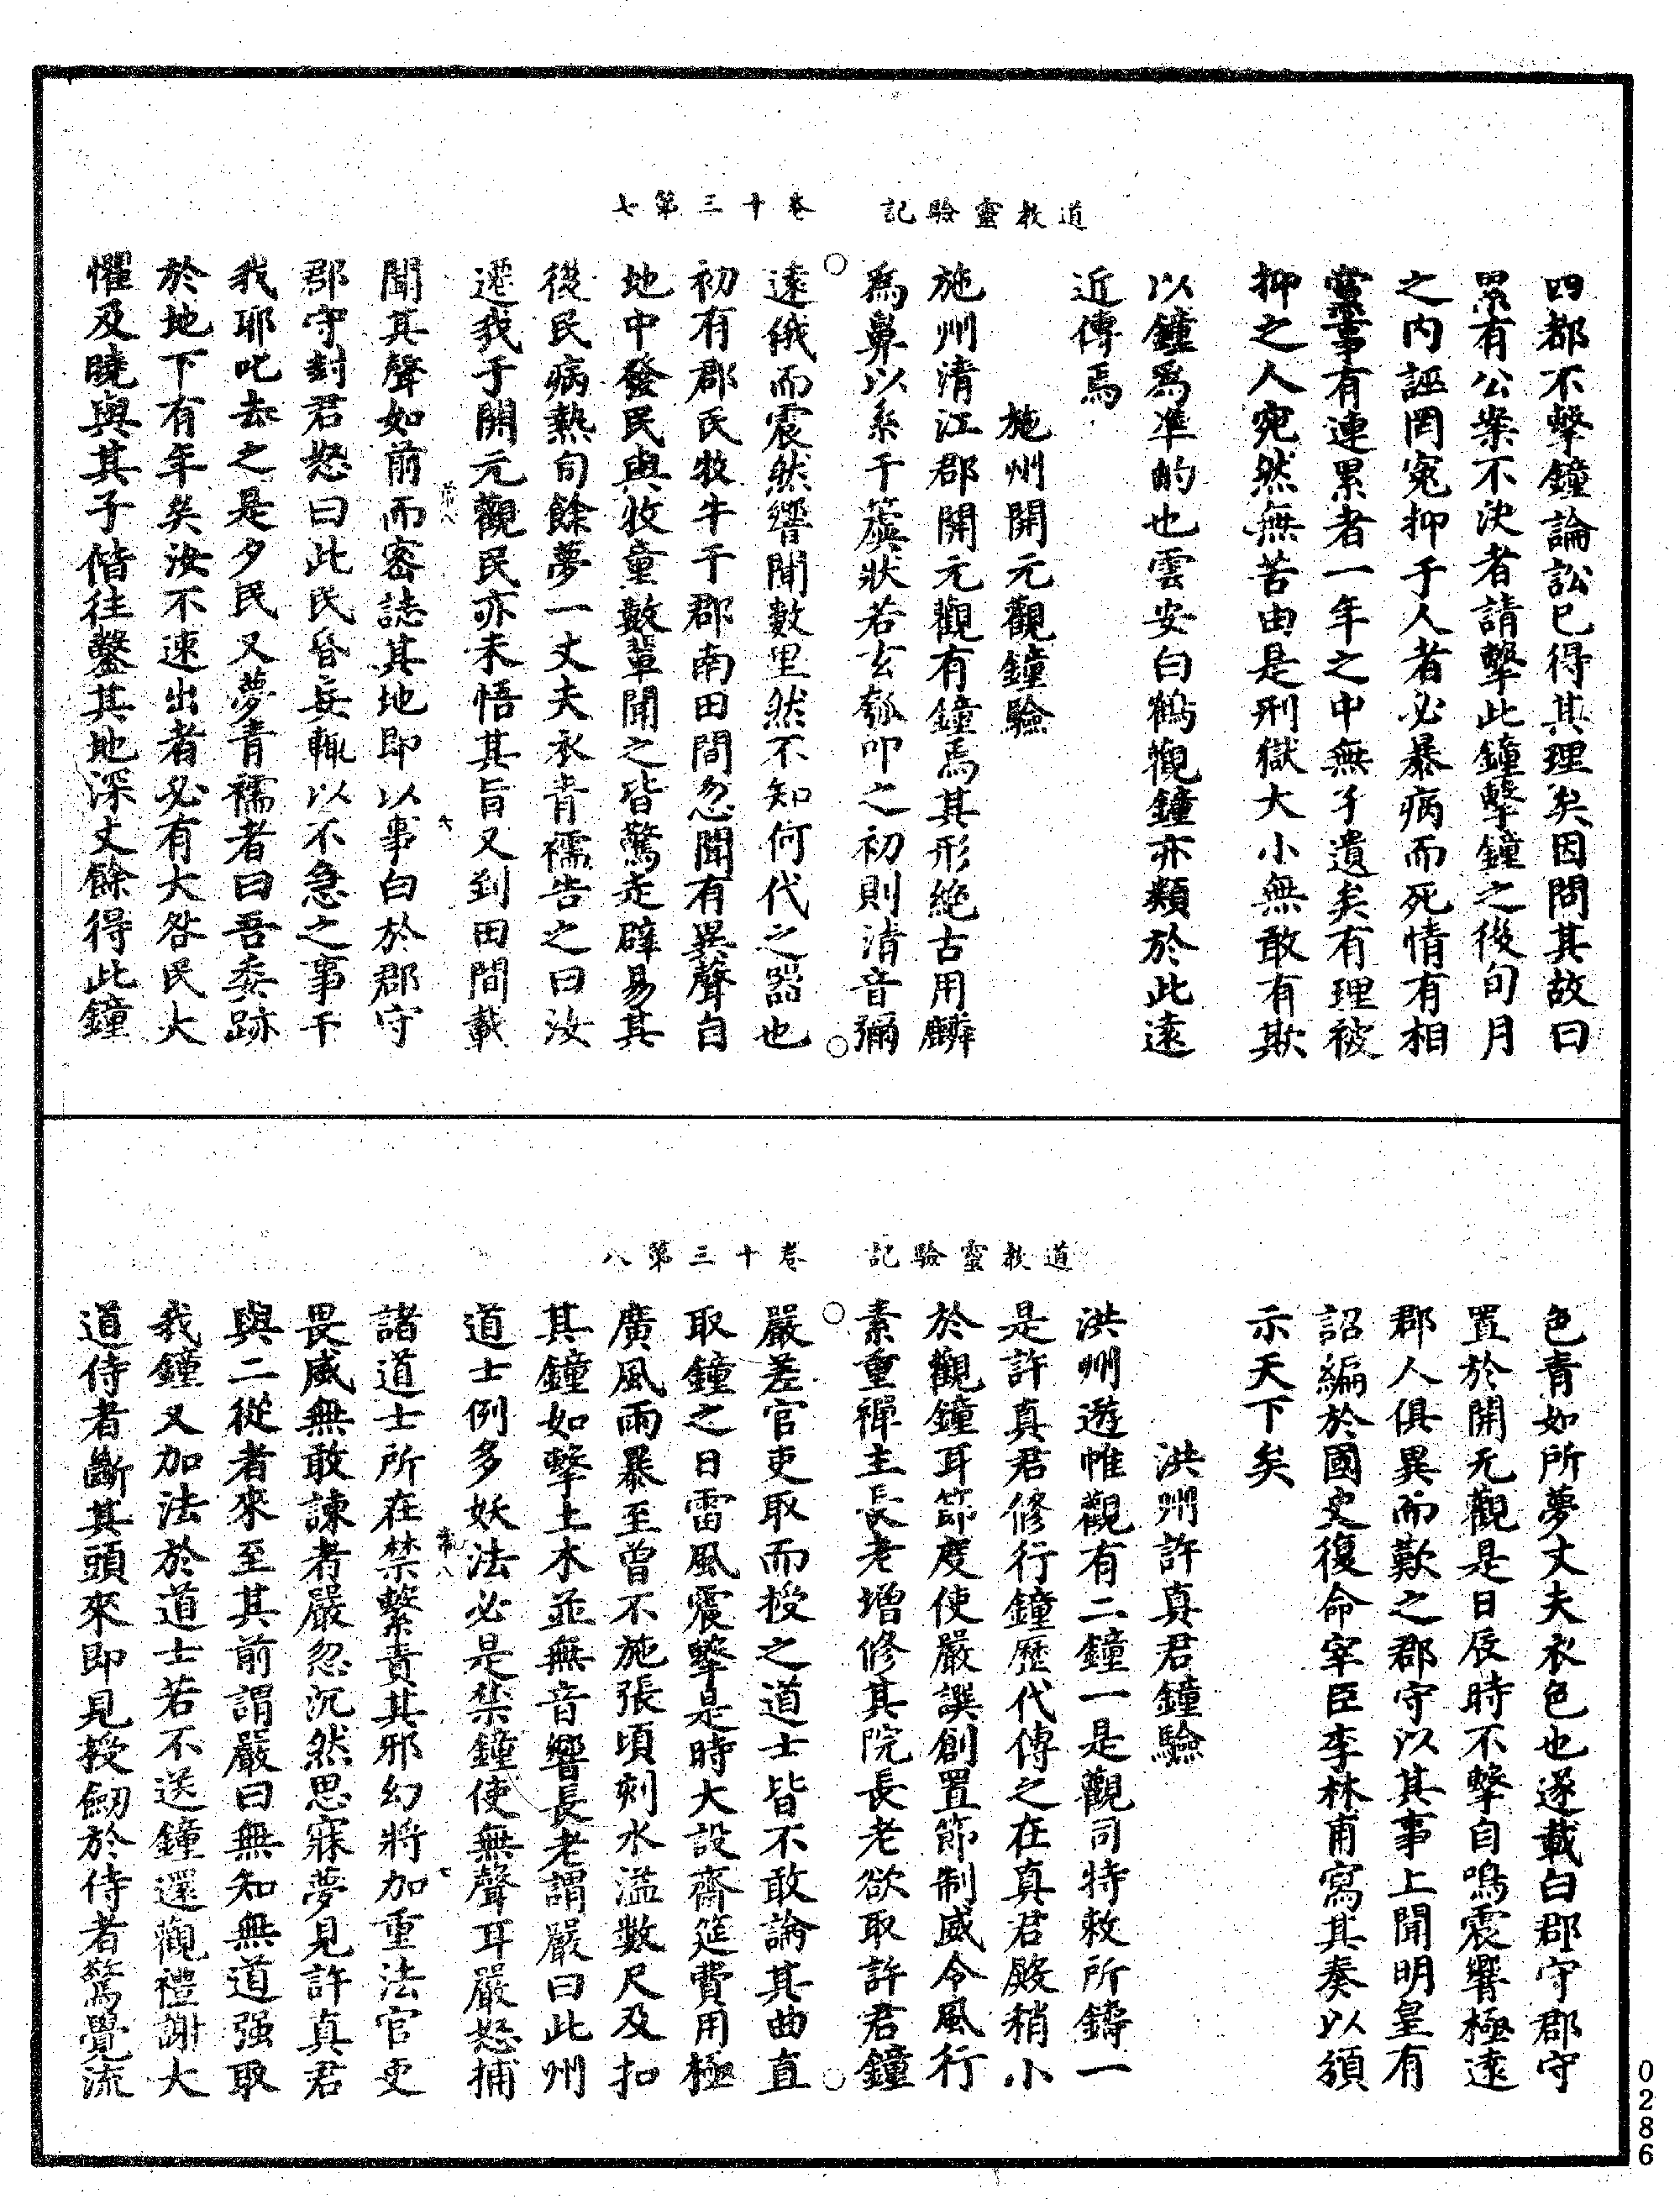 道教靈驗記　卷十三第七
四都不擊鐘論訟已得其理矣因問其故曰
累有公案不決者請擊此鐘擊鐘之後旬月
之內誣罔冤抑于人者必暴病而死情有相
黨事有連累者一年之中無孑遺矣有理被
抑之人宛然無苦由是刑獄大小無敢有欺
以鐘爲準的也雲安白鶴觀鐘亦類於此遠
近傳焉
施州開元觀鐘驗
施州清江郡開元觀有鐘焉其形絶古用麟
爲鼻以系于簴狀若玄瓠叩之初則清音彌
遠俄而震然響聞數里然不知何代之器也
初有郡民牧牛于郡南田間忽聞有異聲自
地中發民與牧童數輩聞之皆驚走辟易其
後民病熱旬餘夢一丈夫衣青襦告之曰汝
遷我于開元觀民亦未悟其旨又到田間載
常八　六
聞其聲如前而密誌其地即以事白於郡守
郡守封君怒曰此民昏妄輒以不急之事干
我耶叱去之是夕民又夢青襦者曰吾委跡
於地下有年矣汝不速出者必有大咎民大
懼及曉與其子偕往鑿其地深丈餘得此鐘
道教靈驗記　卷十三第八
色青如所夢丈夫衣色也遂載白郡守郡守
置於開元觀是日辰時不擊自鳴震響極遠
郡人俱異而歎之郡守以其事上聞明皇有
詔編於國史復命宰臣李林甫寫其奏以頒
示天下矣
洪州許真君鐘驗
洪州遊帷觀有二鐘一是觀司特敕所鑄一
是許真君修行鐘歷代傳之在真君殿稍小
於觀鐘耳節度使嚴譔創置節制威令風行
素重禪主長老增修其院長老欲取許君鐘
嚴差官吏取而授之道士皆不敢論其曲直
取鐘之日雷風震擊是時大設齋筵費用極
廣風雨暴至曾不施張頃刻水溢數尺及扣
其鐘如擊土木並無音響長老謂嚴曰此州
道士例多妖法必是禁鐘使無聲耳嚴怒捕
常八　七
諸道士所在禁繫責其邪幻將加重法官吏
畏威無敢諫者嚴忽沉然思寐夢見許真君
與二從者來至其前謂嚴曰無知無道强取
我鐘又加法於道士若不送鐘還觀禮謝大
道侍者斷其頭來即見授劒於侍者驚覺流
0286